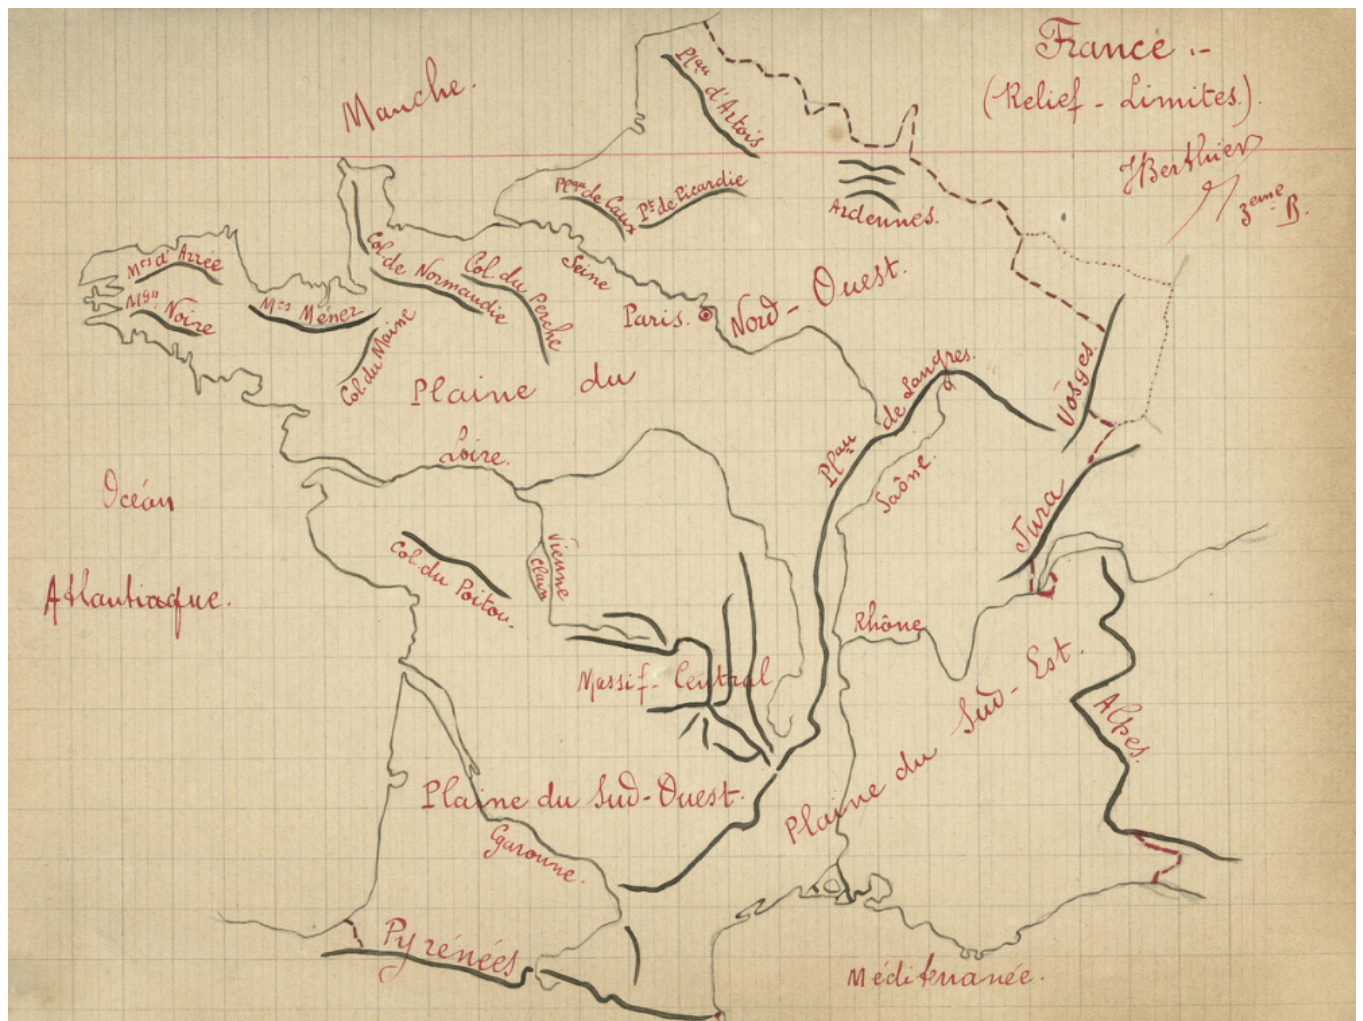 France .-
(Relief - Limites.)
HBerthier
3eme B.
Manche.
Plau d'Artois
Plau de Caux
Pt de Picardie
Ardennes.
Mts d'Arrée
Mgn Noire
Mts Ménez
Col. de Normandie
Col. du Perche
Col. du Maine
Seine
Paris.
Plaine du Nord-Ouest.
Plau de Langres.
Vosges.
Loire.
Saône.
Jura
Océan
Atlantiaque.
Col. du Poitou.
Vienne
Clain
Rhône
Massif-Central
Alpes.
Plaine du Sud-Ouest.
Plaine du Sud-Est.
Garonne.
Pyrénées
Méditerranée.